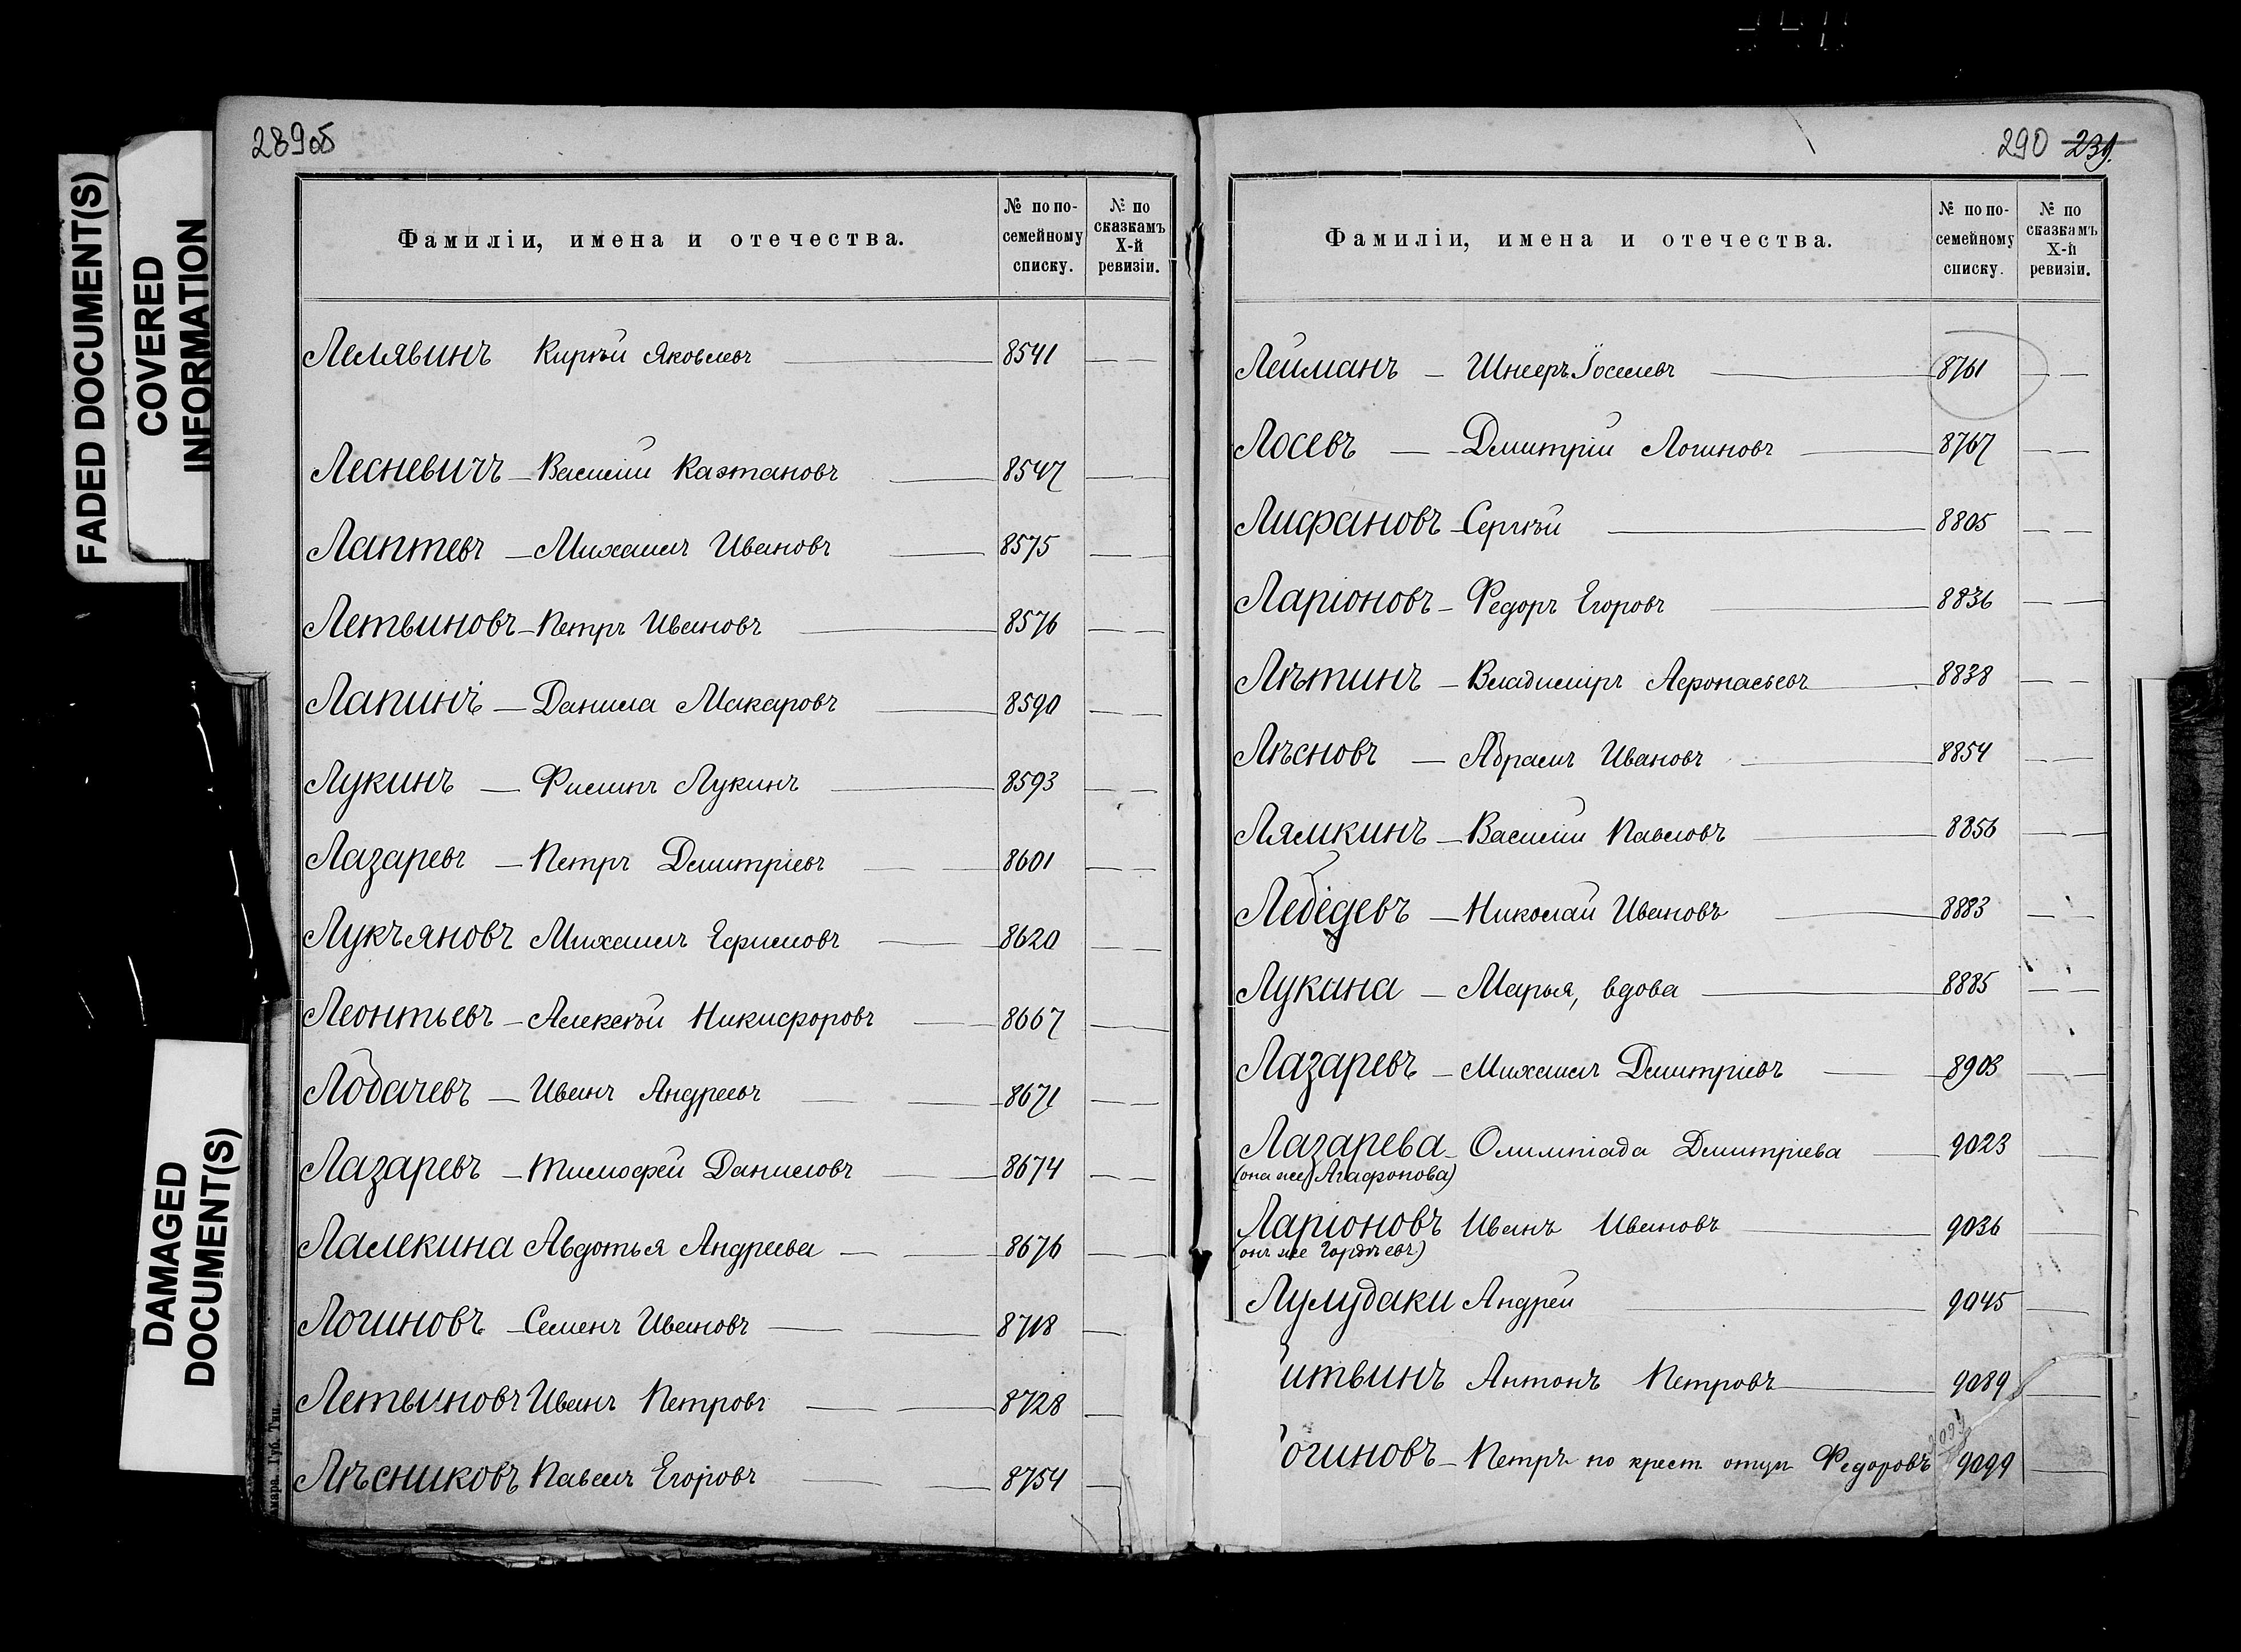 FADED DOCUMENT(S)
COVERED
INFORMATION
DAMAGED
DOCUMENT(S)
289об
Фамиліи, имена и отечества.
№ по по-
семейному
списку.
№ по
сказкамъ
X-й
ревизіи.
Лелявинъ Кирѣй Яковлевъ 8541
Лесневичъ Василій Каэтановъ 8547
Лаптевъ Михаилъ Ивановъ 8575
Летвиновъ Петръ Ивановъ 8576
Лапинъ Данила Макаровъ 8590
Лукинъ Филипъ Лукинъ 8593
Лазаревъ Петръ Дмитріевъ 8601
Лукъяновъ Михаилъ Ефимовъ 8620
Леонтьевъ Алексѣй Никифоровъ 8667
Лобачевъ Иванъ Андреевъ 8671
Лазаревъ Тимофей Даниловъ 8674
Ламекина Авдотья Андреева 8676
Логиновъ Семенъ Ивановъ 8718
Летвиновъ Иванъ Петровъ 8728
Лѣсниковъ Павелъ Егоровъ 8754
Губ. Тип.
290 239.
Фамиліи, имена и отечества.
№ по по-
семейному
списку.
№ по
сказкамъ
X-й
ревизіи.
Лейманъ Шнееръ Іоселевъ 8761
Лосевъ Дмитрій Логиновъ 8767
Лифановъ Сергѣй 8805
Ларіоновъ Федоръ Егоровъ 8836
Лѣтинъ Владиміръ Афонасьевъ 8838
Лѣсновъ Абрамъ Ивановъ 8854
Лямкинъ Василій Павловъ 8856
Лебедевъ Николай Ивановъ 8883
Лукина Марья, вдова 8885
Лазаревъ Михаилъ Дмитріевъ 8903
Лазарева Олимпіада Дмитріева 9023
(она же Агафонова)
Ларіоновъ Иванъ Ивановъ 9036
(онъ же Гордѣевъ)
Лулудаки Андрей 9045
итвинъ Антонъ Петровъ 9089
огиновъ Петръ по крест. отцу Федоровъ 9099